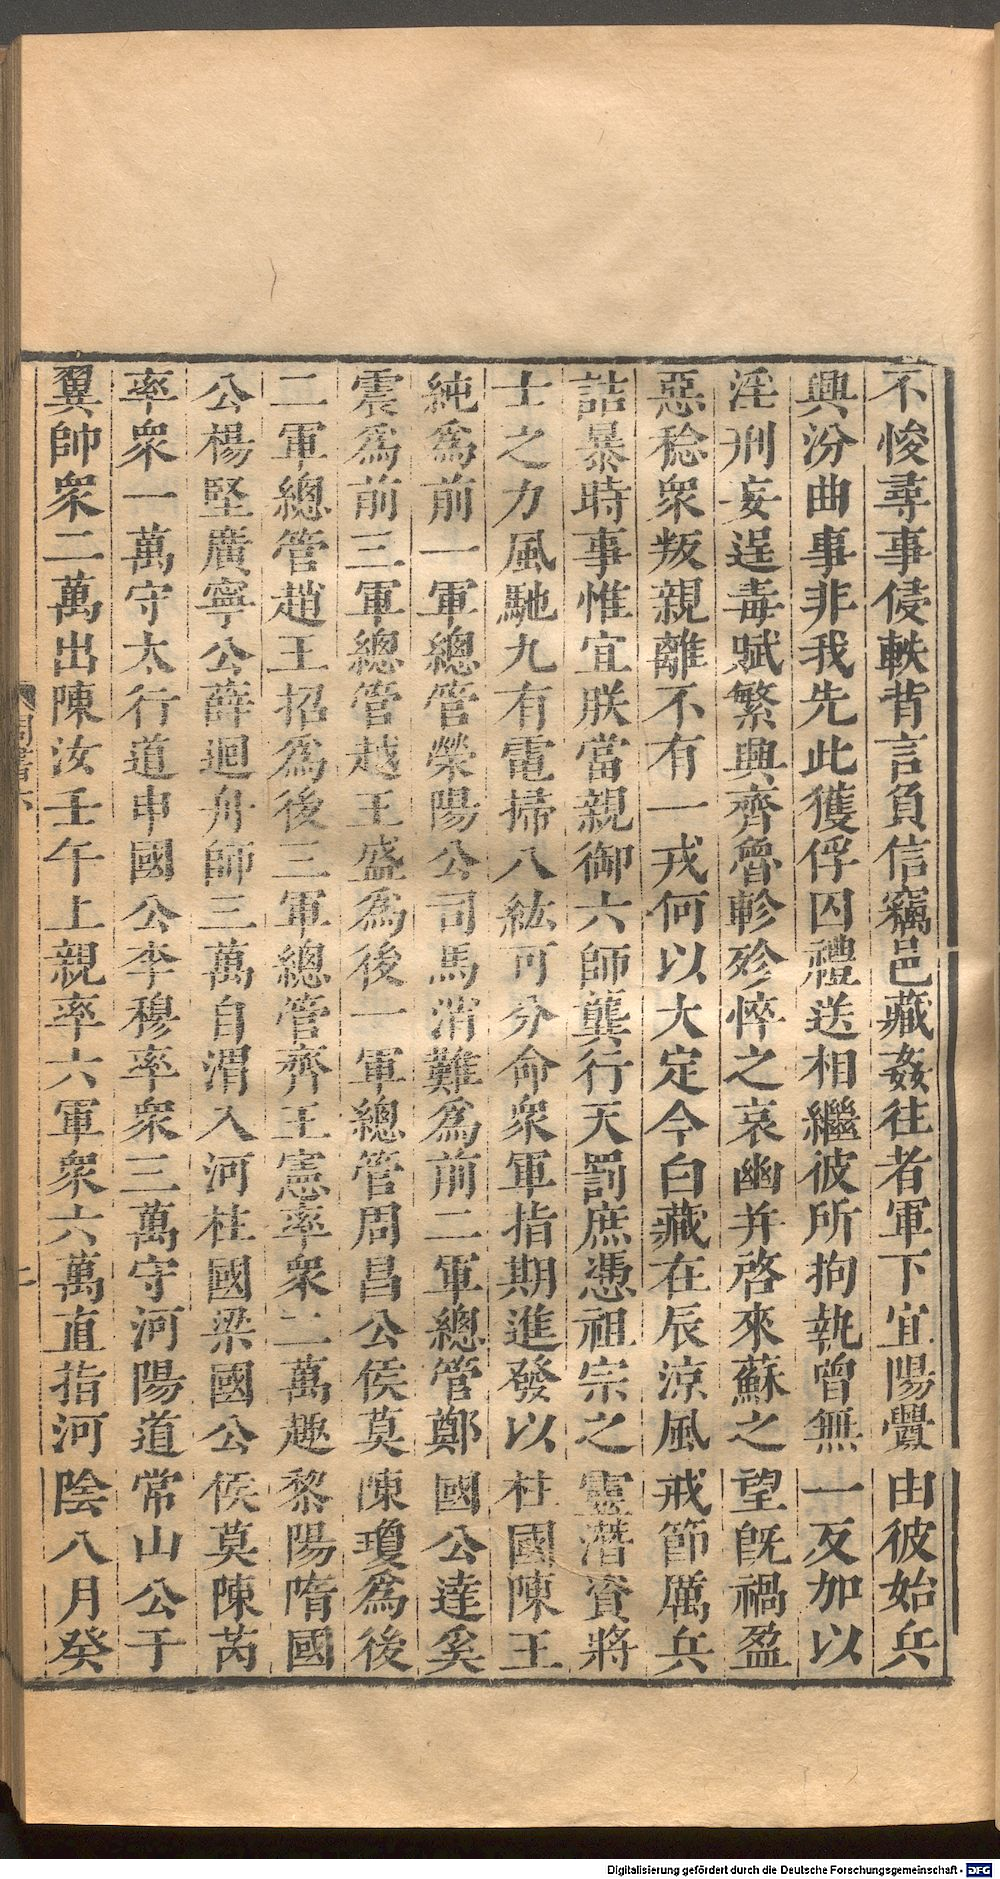 不悛尋事侵軼背言負信竊邑藏姦往者軍下宜陽釁由彼始兵
興汾曲事非我先此獲俘囚禮送相繼彼所拘執曾無一反加以
淫刑妄逞毒賦繁興齊魯軫殄悴之哀幽并啓來蘇之望旣禍盈
惡稔衆叛親離不有一戎何以大定今白藏在辰涼風戒節厲兵
詰暴時事惟宜朕當親御六師龔行天罰庶憑祖宗之靈潛資將
士之力風馳九有電掃八紘可分命衆軍指期進發以柱國陳王
純爲前一軍總管滎陽公司馬消難爲前二軍總管鄭國公達奚
震爲前三軍總管越王盛爲後一軍總管周昌公侯莫陳瓊爲後
二軍總管趙王招爲後三軍總管齊王憲率衆二萬趣黎陽隋國
公楊堅廣寧公薛迴舟師三萬自渭入河柱國梁國公侯莫陳芮
率衆一萬守太行道申國公李穆率衆三萬守河陽道常山公于
翼帥衆二萬出陳汝壬午上親率六軍衆六萬直指河陰八月癸
周書六
Digitalisierung gefördert durch die Deutsche Forschungsgemeinschaft - DFG